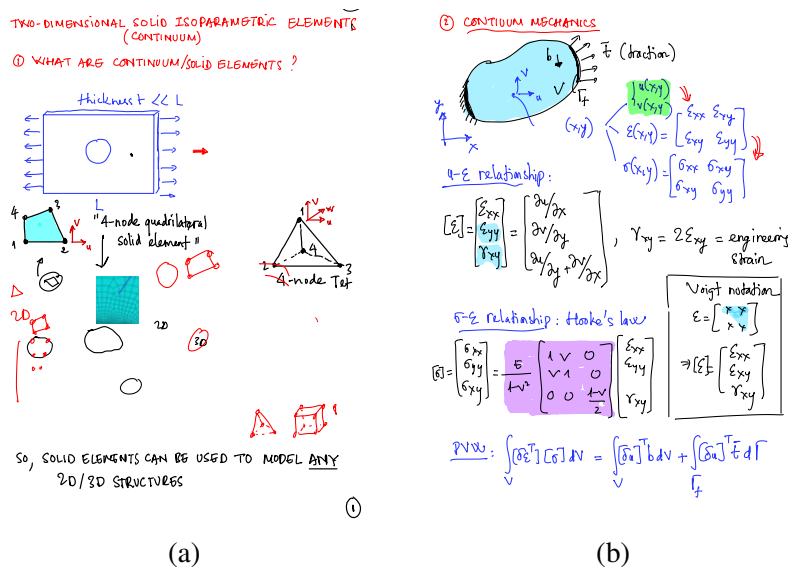 TWO-DIMENSIONAL SOLID ISOPARAMETRIC ELEMENTS
(CONTINUUM)
① WHAT ARE CONTINUUM/SOLID ELEMENTS ?
thickness << L
L
4 3
1 2
v
u
"4-node quadrilateral
solid element"
1 v w
u
4
2 3
4-node Tet
2D
2D
3D
SO, SOLID ELEMENTS CAN BE USED TO MODEL ANY
2D/3D STRUCTURES
①
(a)
② CONTIUUM MECHANICS
t̄ (traction)
b
v
u
V
Γf
y
x
(x,y)
u(x,y)
v(x,y)
ε(x,y) = [εxx εxy
εxy εyy]
σ(x,y) = [σxx σxy
σxy σyy]
u-ε relationship:
[ε] = [εxx εyy γxy] = [∂u/∂x ∂v/∂y ∂u/∂y + ∂v/∂x] , γxy = 2εxy = engineering
strain
Voigt notation
ε = [x x
x x]
⇒ [ε] = [εxx
εyy
γxy]
σ-ε relationship: Hooke's law
[σ] = [σxx σyy σxy] = E/1-ν² [1 ν 0
ν 1 0
0 0 1-ν/2] [εxx εyy γxy]
PVW: ∫V [δε^T][σ] dV = ∫V [δu]^T b dV + ∫Γf [δu]^T t̄ dΓ
(b)